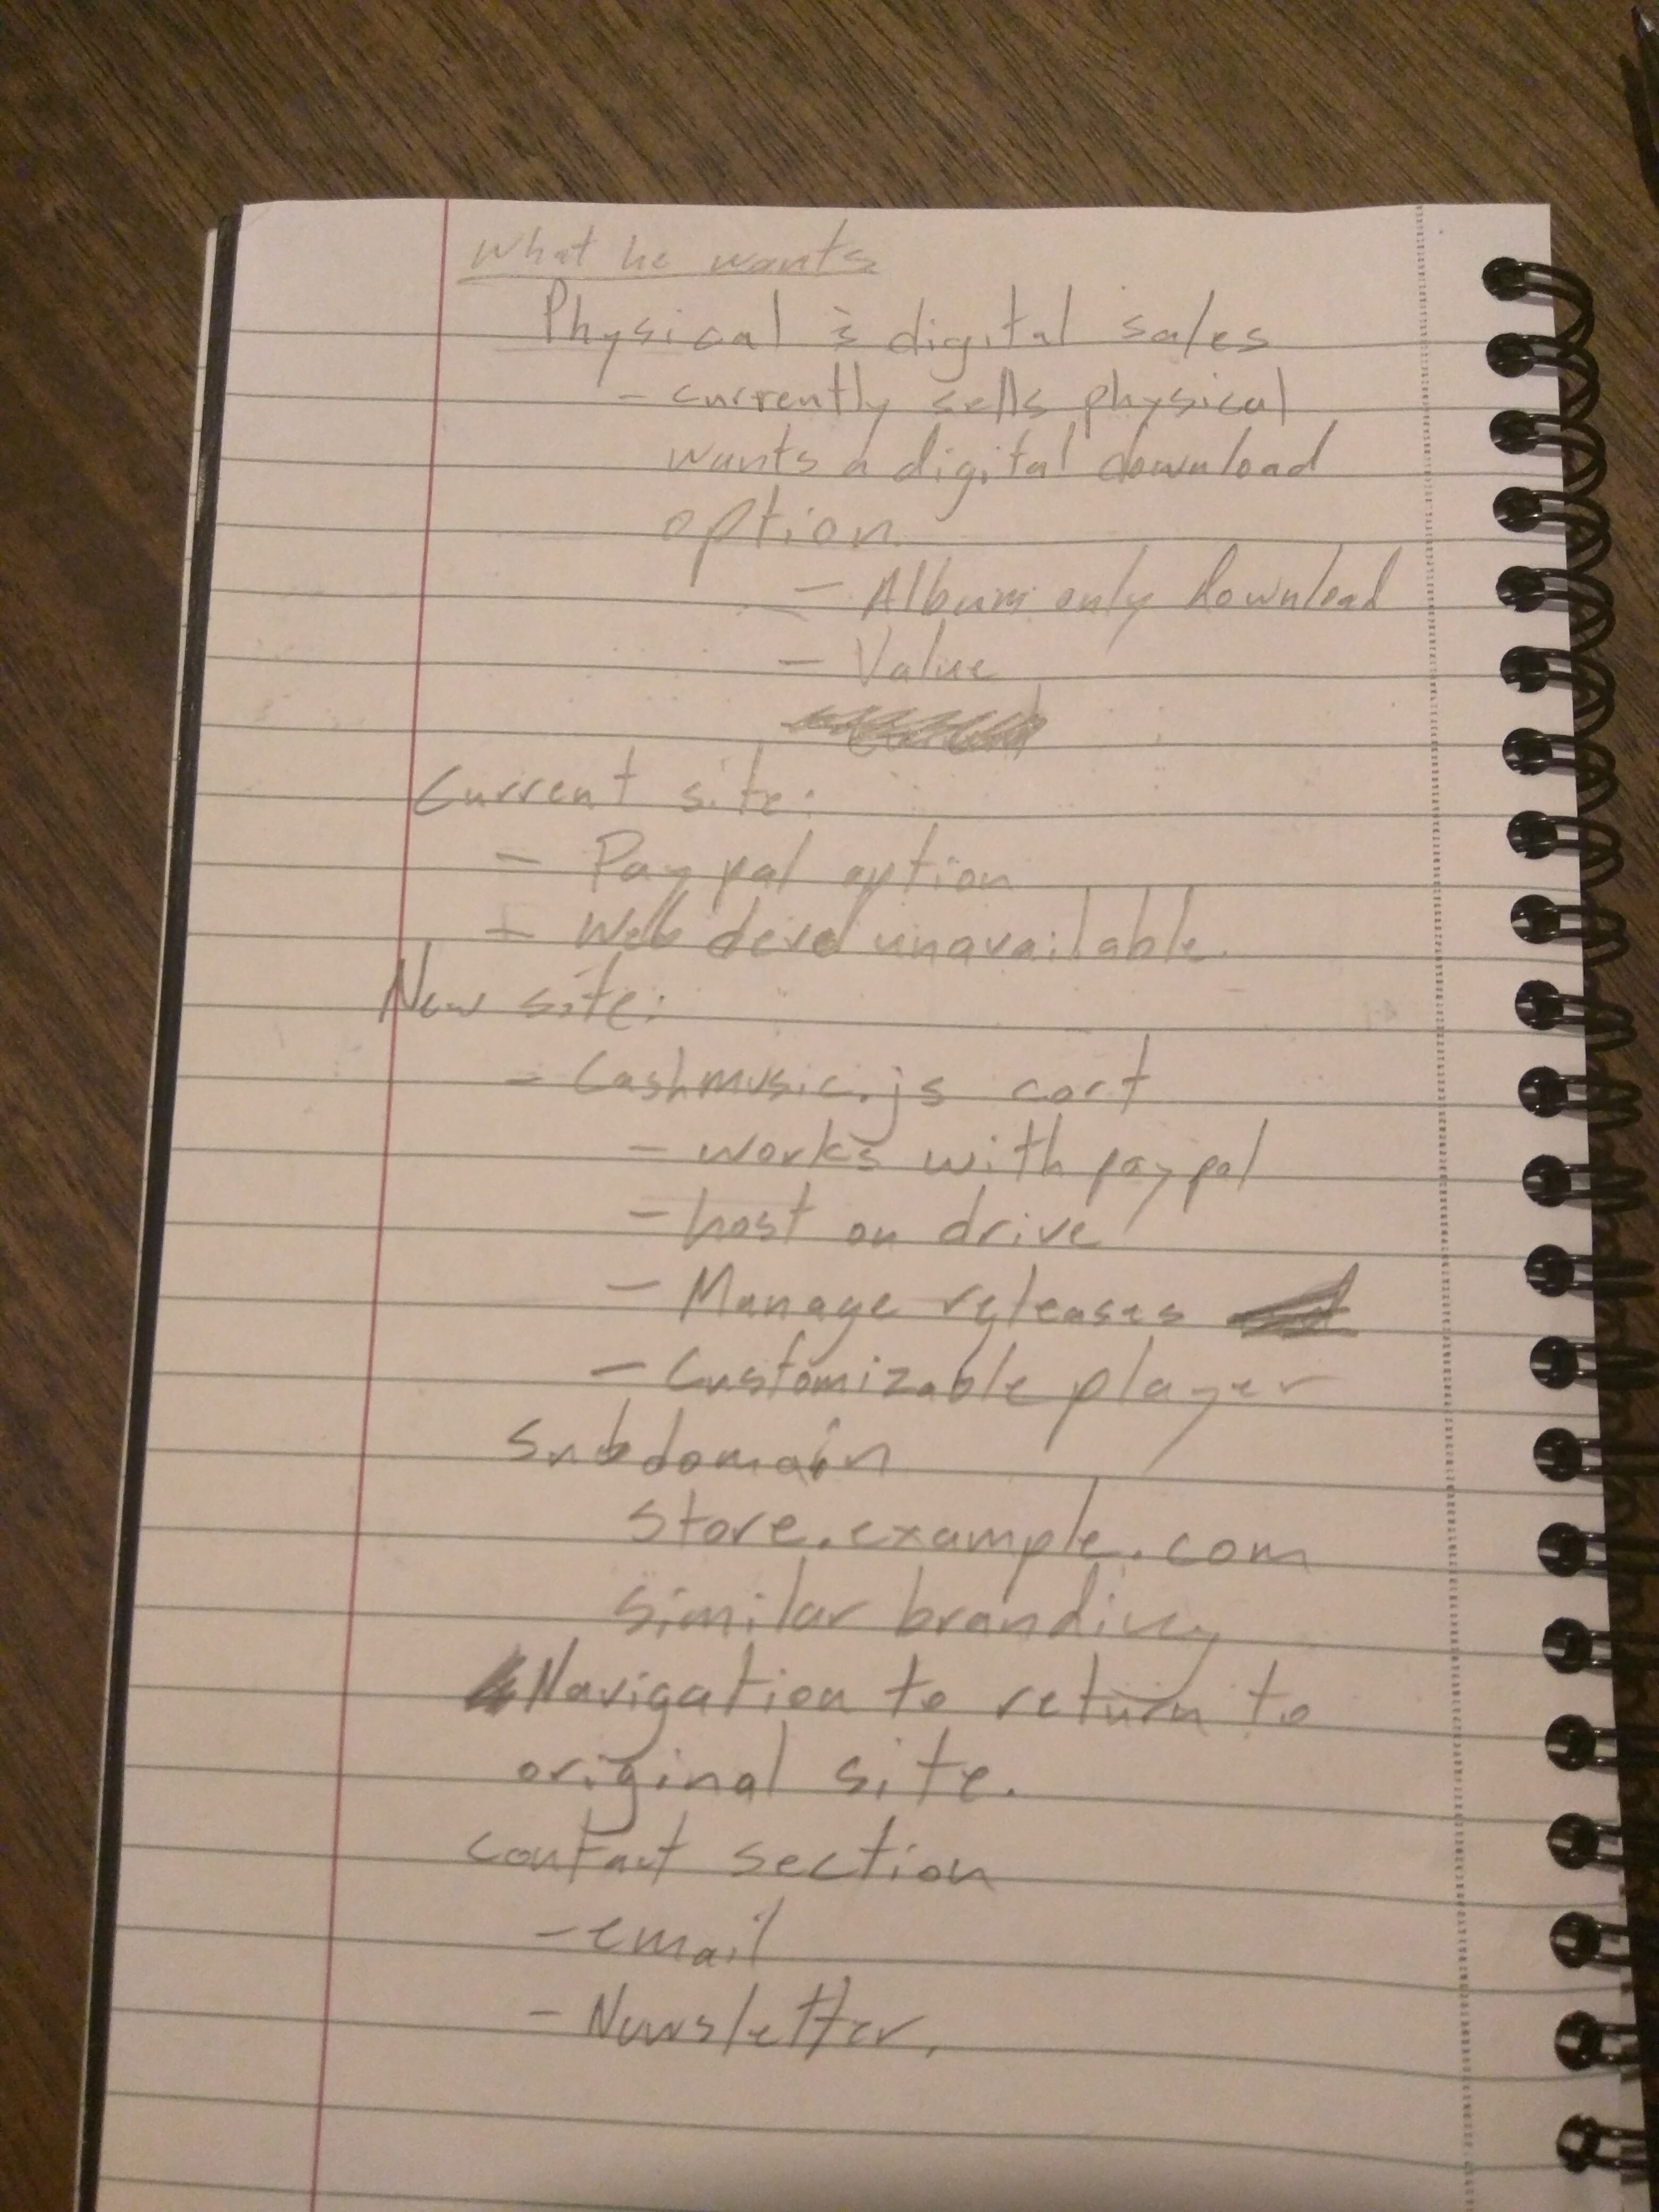 What he wants
Physical & digital sales
- currently sells physical
wants a digital download
option
- Album only download
- Value
Current site:
- Paypal option
- Web devel unavailable.
New site:
- Cashmusic.js cart
- works with paypal
- host on drive
- Manage releases
- Customizable player
Subdomain
store.example.com
similar branding
Navigation to return to
original site.
contact section
- email
- Newsletter.